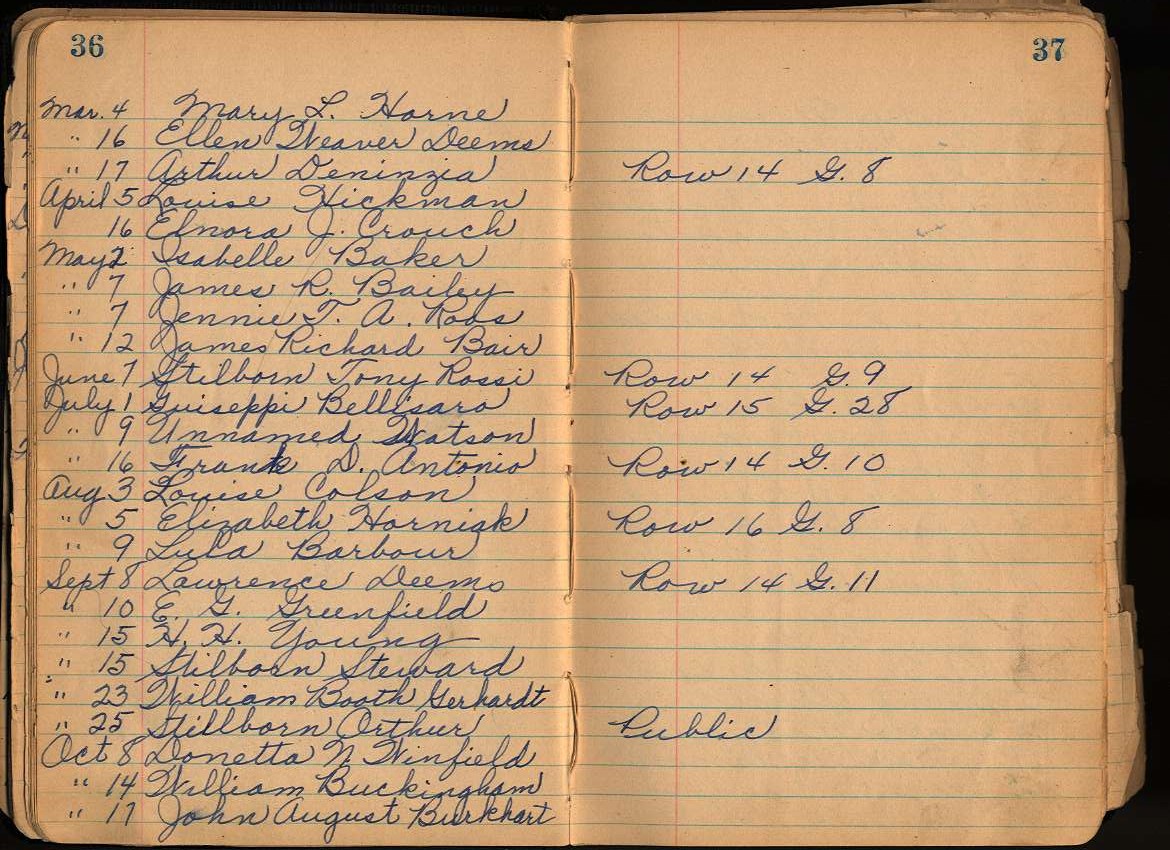 36
37
Mar. 4 Mary L. Horne
" 16 Ellen Weaver Deems
" 17 Arthur Deninzia Row 14 G. 8
April 5 Louise Hickman
16 Elnora J. Crouch
May 2 Isabelle Baker
" 7 James R. Bailey
" 7 Jennie T. A. Roos
" 12 James Richard Bair
June 7 Stilborn Tony Rossi Row 14 G. 9
July 1 Guiseppi Bellisaro Row 15 G. 28
" 9 Unnamed Watson
" 16 Frank D. Antonio Row 14 G. 10
Aug 3 Louise Colson
" 5 Elizabeth Horniak Row 16 G. 8
" 9 Lula Barbour
Sept 8 Lawrence Deems Row 14 G. 11
" 10 E. G. Greenfield
" 15 H. H. Young
" 15 Stilborn Steward
" 23 William Booth Gerhardt
" 25 Stillborn Orthur Public
Oct 8 Donetta N. Winfield
" 14 William Buckingham
" 17 John August Burkhart